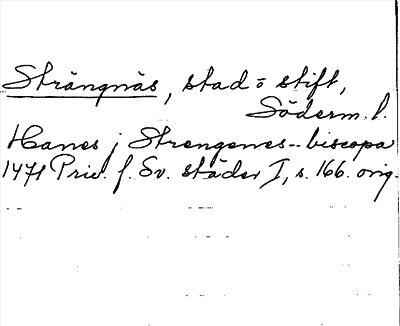 Strängnäs, stad o stift,
Söderm. l.
Hanes j Strengenes-- biscopa
1471 Priv. f. Sv. städer I, s. 166. orig.